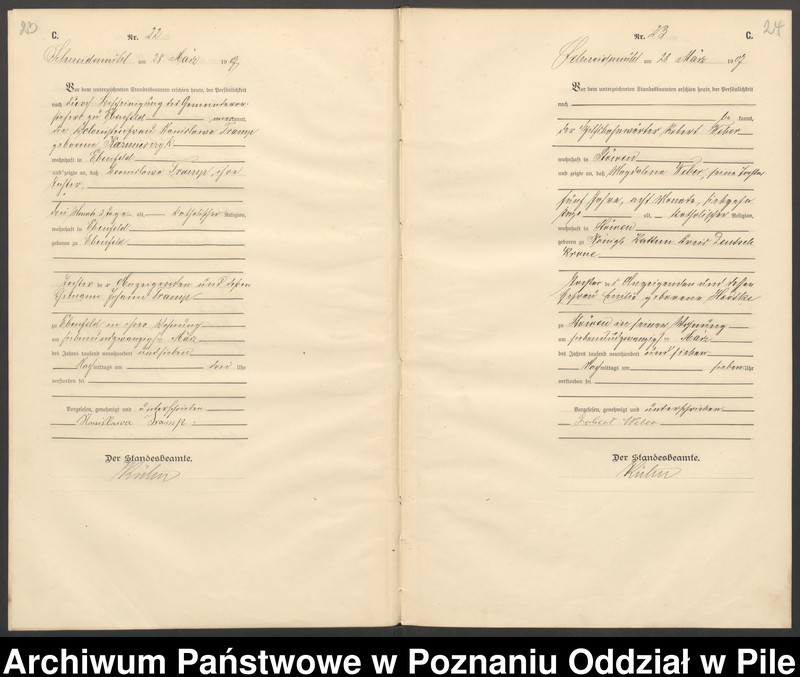 C.
Nr. 22
Schneidemühl am 28 März 1907
Vor dem unterzeichneten Standesbeamten erschien heute, der Persönlichkeit
nach durch Bescheinigung des Gemeindevor
stehers zu Ebenfeld anerkannt,
die Stanislawa Tramp
geborene Kazmierczyk
wohnhaft in Ebenfeld
und zeigte an, daß Bronislawa Tramp, ihre
Tochter
drei Monate Tage alt, katholischer Religion,
wohnhaft in Ebenfeld
geboren zu Ebenfeld
Tochter der Anzeigenden und deren
Ehemann Johann Tramp
zu Ebenfeld in ihrer Wohnung
am siebenundzwanzigsten März
des Jahres tausend neunhundert und sieben
Nachmittags um drei Uhr
verstorben sei.
Vorgelesen, genehmigt und unterschrieben
Stanislawa Tramp
Der Standesbeamte.
Kühn
24
Nr. 23
C.
Schneidemühl am 28 März 1907
Vor dem unterzeichneten Standesbeamten erschien heute, der Persönlichkeit
nach
be kannt,
der Robert Weber
wohnhaft in Stöwen
und zeigte an, daß Magdalena Weber, seine Tochter
fünf Jahre, acht Monate, siebzehn
Tage alt, katholischer Religion,
wohnhaft in Stöwen
geboren zu Königl. Kreis Deutsch
Krone
Tochter des Anzeigenden und dessen
Ehefrau Emilie geborene
zu Stöwen in seiner Wohnung
am siebenundzwanzigsten März
des Jahres tausend neunhundert und sieben
Nachmittags um sieben Uhr
verstorben sei.
Vorgelesen, genehmigt und unterschrieben
Robert Weber
Der Standesbeamte.
Kühn
Archiwum Państwowe w Poznaniu Oddział w Pile